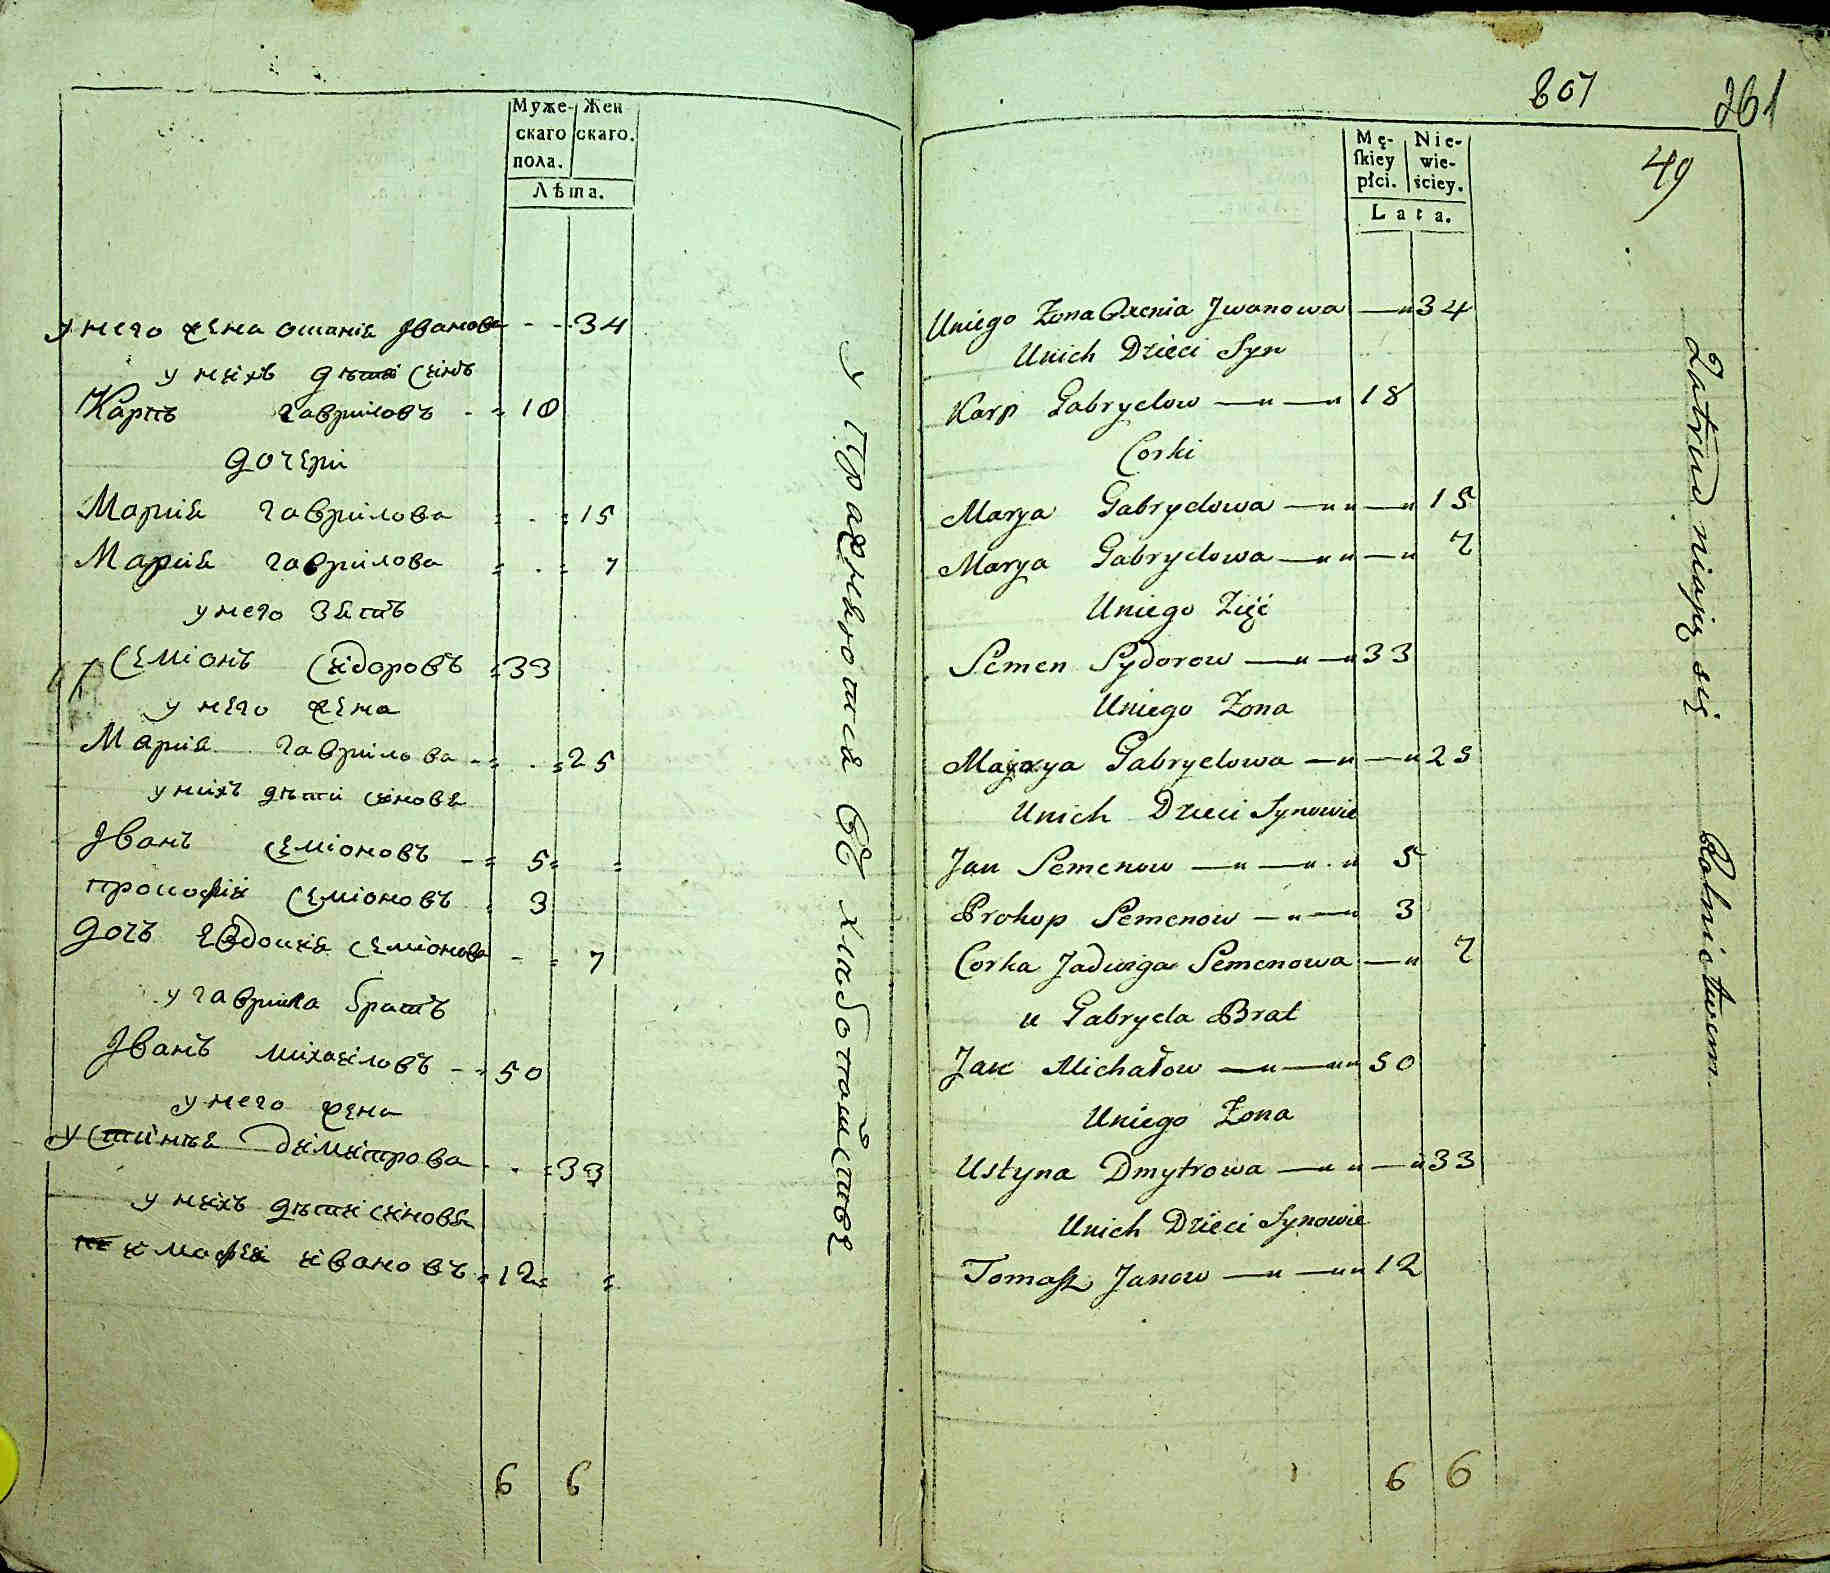 Муже-
скаго
пола.
Жен
скаго.
Лѣта.
у него жена Іванова - - 34
у нихъ дѣти синъ
Карпъ гаврилов - = 18
дочери
Мария гаврилова = . = 15
Мария гаврилова = . = 7
у него зять
Семіонъ Сидоровъ = 33
у него жена
Мария гаврилова - = . = 25
у нихъ дѣти синовя
Іванъ семіоновъ - = 5 = =
прокофий семіоновъ . 3
дочъ Евдокия семіонова - = 7
у гаврила братъ
Іванъ михаиловъ - = 50
у него жена
устинья димитрова . . = 33
у нихъ дѣти синовя
имофеи ивановъ = 12 = =
6 6
упражняютися въ хлѣбопашествѣ
807
261
49
Mę-
ſkiey
płci.
Nie-
wie-
ściey.
Lata.
Uniego Zona Oxenia Jwanowa —„ 34
Unich Dzieci Syn
Karp Gabryelow —„—„ 18
Corki
Marya Gabryelowa —„„—„ 15
Marya Gabryelowa —„„—„ 7
Uniego Zięć
Semen Sydorow —„—„ 33
Uniego Zona
Marya Gabryelowa —„—„ 25
Unich Dzieci Synowie
Jan Semenow —„—„.„ 5
Prokop Semenow —„—„ 3
Corka Jadwiga Semenowa —„ 7
u Gabryela Brat
Jan Michałow —„—„„ 50
Uniego Zona
Ustyna Dmytrowa —„„—„ 33
Unich Dzieci Synowie
Tomaſz Janow —„—„„ 12
6 6
Zatrudniaią się Rolnictwem.